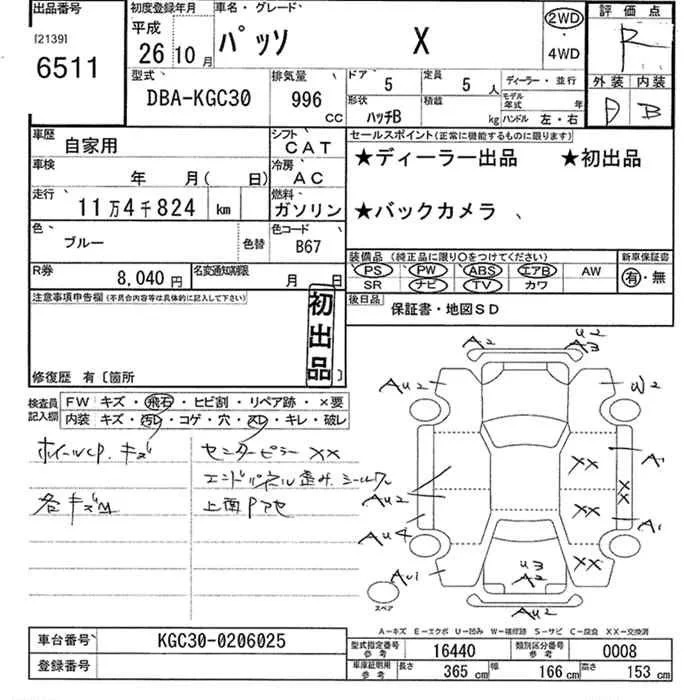 出品番号
[2139]
6511
初度登録年月
平成
26 10月
車名・グレード
パッソ X
2WD
・
4WD
評価点
R
外装 内装
D B
型式
DBA-KGC30
排気量
996
CC
ドア
5
定員
5人
ディーラー・並行
モデル年式 年
形状
ハッチB
積載
kg
ハンドル 左・右
車歴
自家用
シフト
CAT
車検
年 月( 日)
冷房
AC
走行
11万4千824 km
燃料
ガソリン
色
ブルー
色替
色コード
B67
R券
8,040円
名変通知期限
月 日
セールスポイント(正常に機能するものに限ります)
★ディーラー出品 ★初出品
★バックカメラ
装備品 (純正品に限り〇をつけてください)
PS PW ABS エアB AW
SR ナビ TV カワ
新車保証書
有・無
後日品
保証書・地図SD
注意事項申告欄 (不具合内容等は具体的に記入して下さい)
初出品
修復歴 有〔箇所 〕
検査員記入欄
FW キズ・飛石・ヒビ割・リペア跡・×要
内装 キズ・汚レ・コゲ・穴・スレ・キレ・破レ
ホイールCP.キズ
各キズM
センターピラー XX
エンドパネル歪み.シールワレ
上面Pアセ
A2
U2
A3
AU2
W2
XX
A1
X
X
AU2
XX
A1
AU4
XX
AU1
U3
A2
AU2
スペア
A-キズ E-エクボ U-凹み W-補修跡 S-サビ C-腐食 XX-交換済
車台番号
KGC30-0206025
登録番号
型式指定番号 参考
16440
類別区分番号 参考
0008
車庫証明用 参考
長さ 365 cm
幅 166 cm
高さ 153 cm